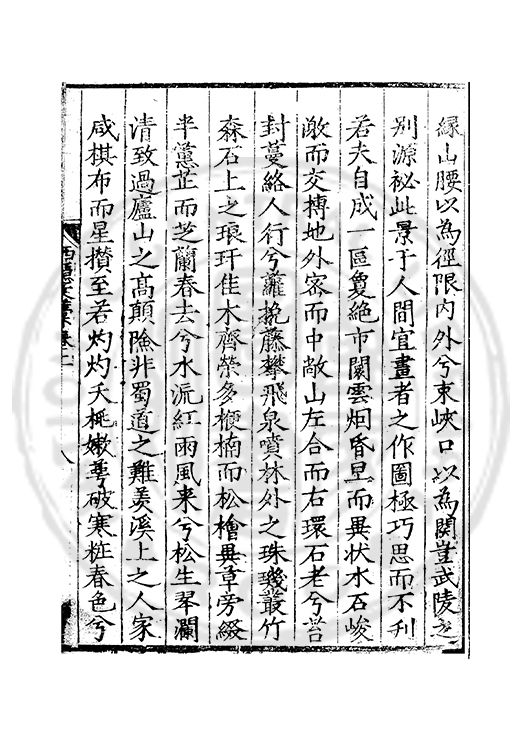 緣山腰以為徑限内外兮束峽口以為関豈武陵之
别源祕此景于人間宜畫者之作圖極巧思而不刋
若夫自成一區夐絕市闤雲烟昏旦而異状水石峻
敞而交摶地外宻而中敞山左合而右環石老兮苔
封蔓絡人行兮蘿挽藤攀飛泉噴林外之珠璣叢竹
森石上之琅玕佳木齊榮多楩楠而松檜異草旁綴
半薰芷而芝蘭春去兮水流紅雨風来兮松生翠瀾
清致過廬山之髙顛險非蜀道之難羙溪上之人家
咸棋布而星攅至若灼灼夭桃嫩萼破寒粧春色兮
八